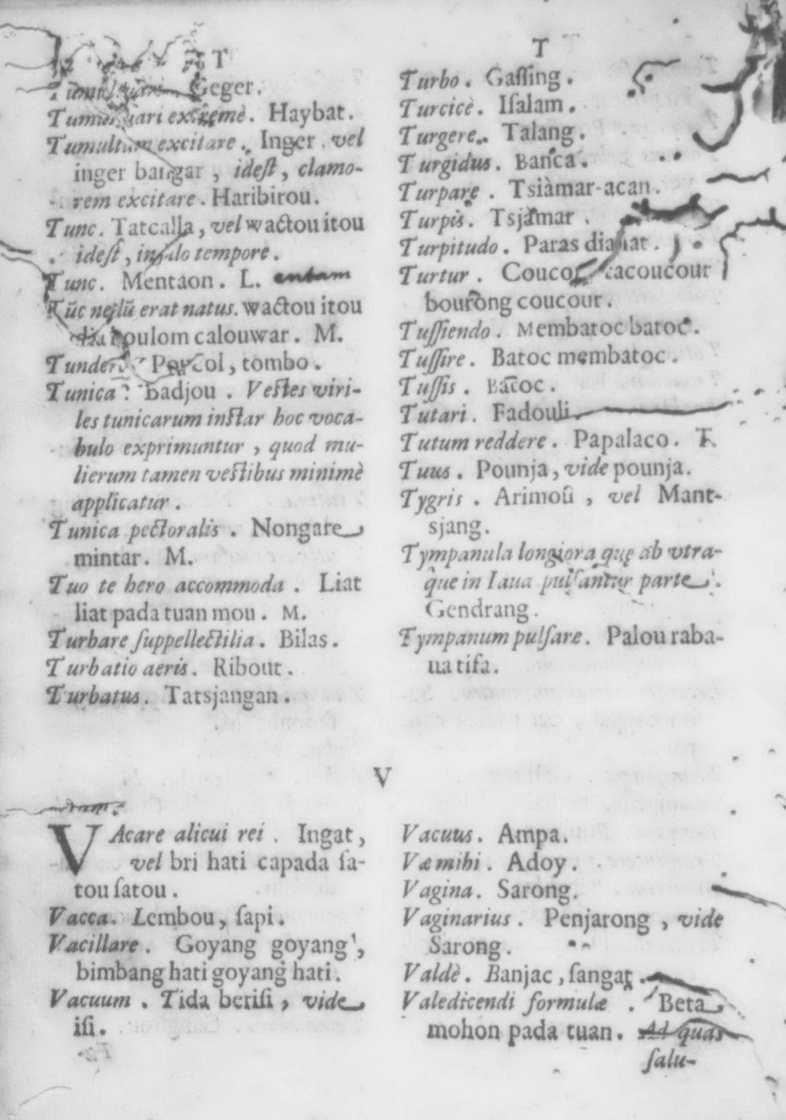 T
Geger.
Tumultuari extremè. Haybat.
Tumultum excitare. Inger vel
inger bangar, idest, clamo-
rem excitare. Haribirou.
Tunc. Tatcalla, vel wactou itou
idest, in illo tempore.
Tunc. Mentaon. L.
nōdū erat natus. wactou itou
dia boulom calouwar. M.
Tundere. Poucol, tombo.
Tunica. Badjou. Vestes viri-
les tunicarum instar hoc voca-
bulo exprimuntur, quod mu-
lierum tamen vestibus minimè
applicatur.
Tunica pectoralis. Nongare
mintar. M.
Tuo te hero accommoda. Liat
liat pada tuan mou. M.
Turbare suppellectilia. Bilas.
Turbatio aeris. Ribout.
Turbatus. Tatsjangan.
T
Turbo. Gaſſing.
Turcicè. Iſalam.
Turgere. Talang.
Turgidus. Banca.
Turpare. Tsiàmar-acan.
Turpis. Tsjamar.
Turpitudo. Paras dia jat.
Turtur. Coucor, cacoucour
bourong coucour.
Tuſſiendo. Membatoc batoc.
Tuſſire. Batoc membatoc.
Tuſſis. Batoc.
Tutari. Fadouli.
Tutum reddere. Papalaco. T.
Tuus. Pounja, vide pounja.
Tygris. Arimoû, vel Mant-
sjang.
Tympanula longiora quę ab vtra-
que in Iaua pulſantur parte.
Gendrang.
Tympanum pulſare. Palou raba-
na tifa.
V
VAcare alicui rei. Ingat,
vel bri hati capada ſa-
tou ſatou.
Vacca. Lembou, ſapi.
Vacillare. Goyang goyang,
bimbang hati goyang hati.
Vacuum. Tida beriſi, vide
iſi.
Vacuus. Ampa.
Væ mihi. Adoy.
Vagina. Sarong.
Vaginarius. Penjarong, vide
Sarong.
Valdè. Banjac, ſangat.
Valedicendi formulæ. Beta
mohon pada tuan. Ad quas
ſalu-